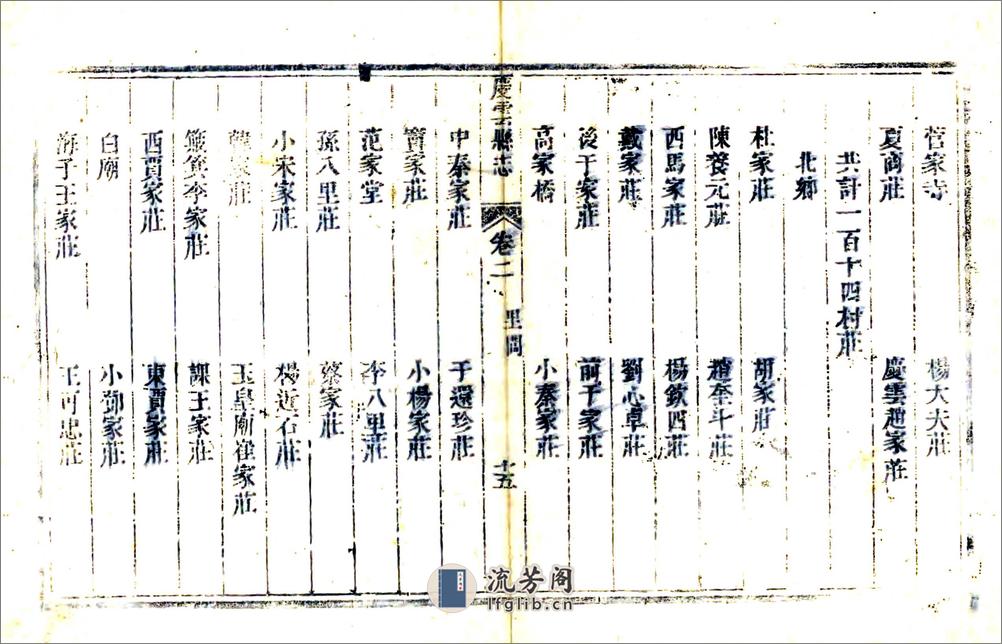 菅家寺　楊大夫莊
夏商莊　慶雲趙家莊
共計一百十四村莊
北鄉
杜家莊　胡家莊
陳養元莊　趙奎斗莊
西馬家莊　楊欽四莊
戴家莊　劉心章莊
後于家莊　前于家莊
高家橋　小秦家莊
慶雲縣志　卷二　里閭　十五
中秦家莊　于還珍莊
竇家莊　小楊家莊
范家堂　李八里莊
孫八里莊　蔡家莊
小宋家莊　楊近石莊
家莊　玉皇廟崔家莊
簸箕李家莊　課王家莊
西賈家莊　東賈家莊
白廟　小鄧家莊
海子王家莊　王可忠莊
流芳阁
lfglib.cn